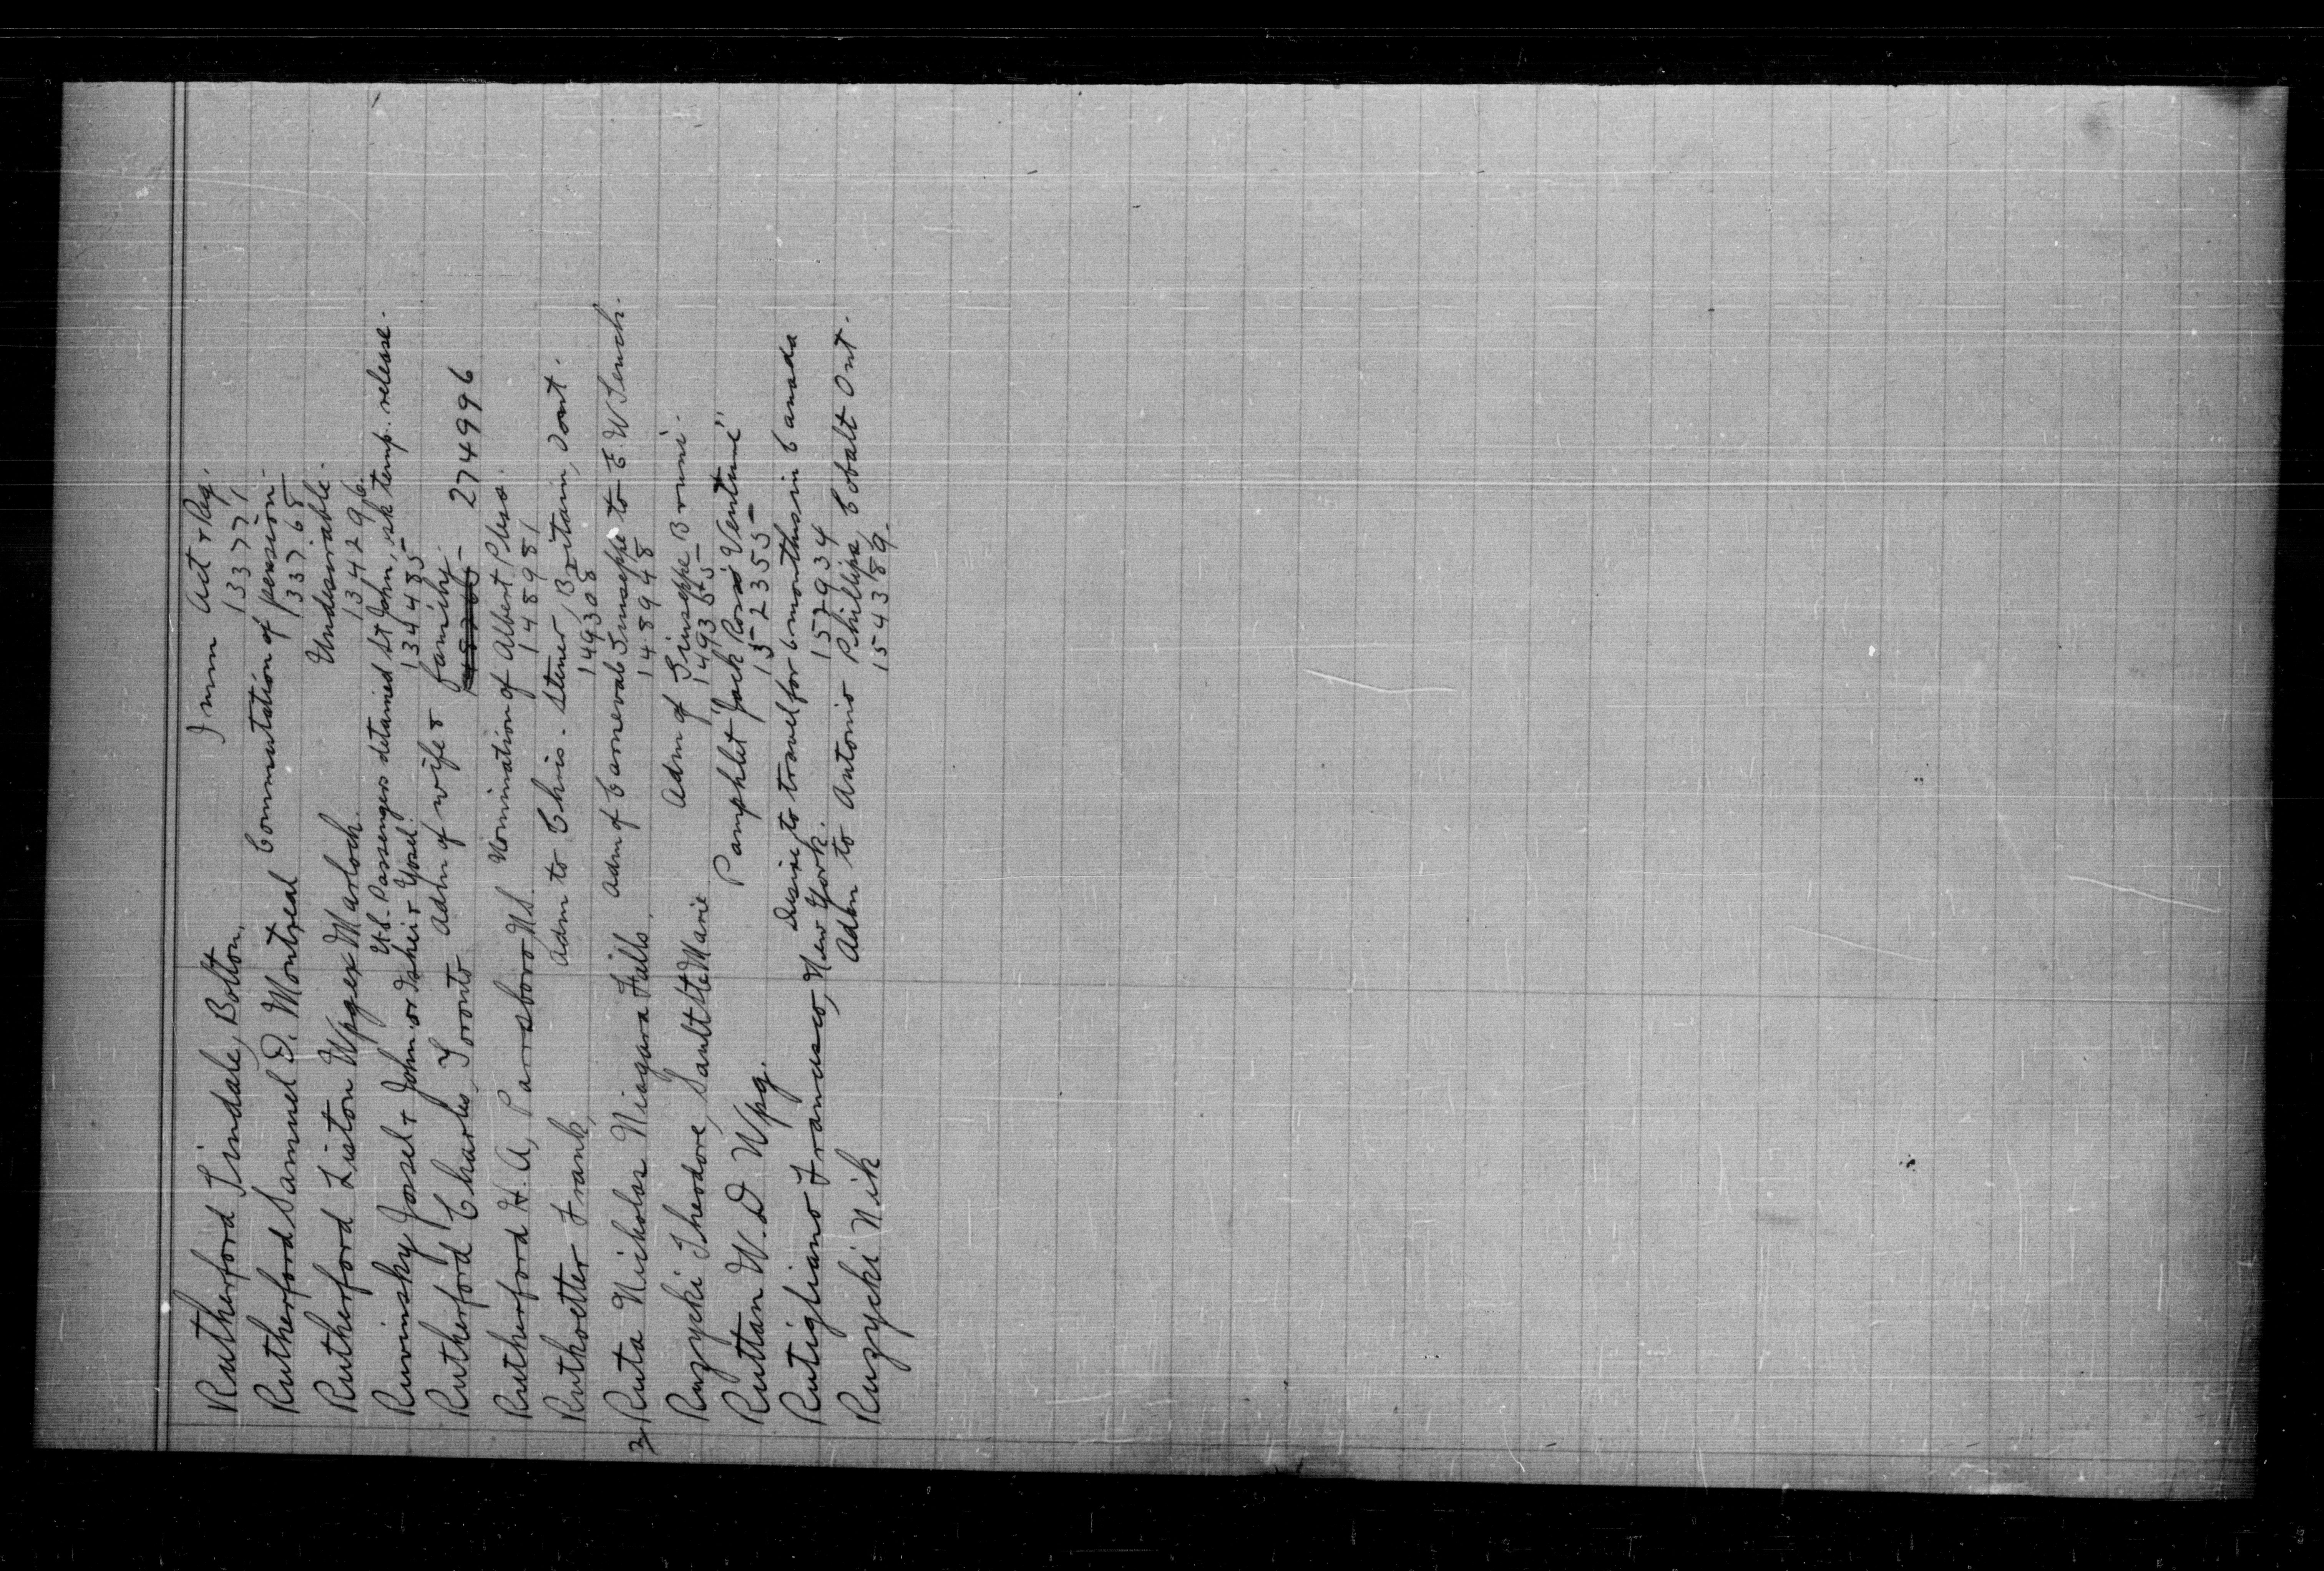 Rutherford Lindale, Bolton. Imm Act & Reg.
133771
Rutherford Samuel D. Montreal Commutation of pension.
133765
Rutherford Liston Wpg ex Marloch. Undesirable.
134296.
Passengers detained St John, ask temp. release.
Ruvinsky Josel & John or & Yosel.
134485
Rutherford Charles, Toronto Adm of wife & family.
274996
Rutherford H. A, Parrsboro N.S. Nomination of Albert Pleso.
148981
Ruthoetter Frank, Adm to Chris. Stener, Britain, Dont.
149308
3 Ruta Nicholas Niagara Falls, Adm of Carnevale Giuseppe to
148948
Ruzycki Theodore, Sault Ste Marie Adm of Giuseppe Bruni.
Ruttan W. D Wpg. Pamphlet "Jack Ross' Venture"
152355
Desire to travel for 6 months in Canada
Rutigliano Francesco, New York.
152934
Ruzycki Nik Adm to Antonio Phillips, Cobalt Ont.
154389